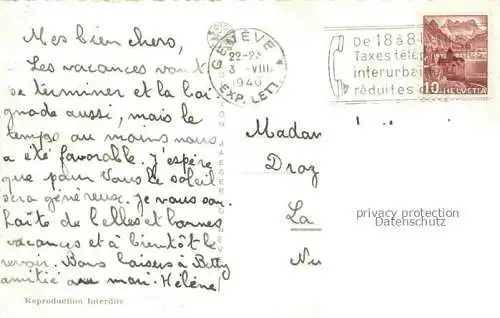 Mes bien chers,
Les vacances vont
se terminer et la bai
gnade aussi, mais le
temps au moins nous
a été favorable. J'espère
que pour vous le soleil
sera généreux. Je vous sou
haite de belles et bonnes
vacances et à bientôt le
revoir. Bons baisers à Betty
amitié au mari. Hélène
Reproduction Interdite
GENÈVE
22-23
3. VIII.
1940
EXP. LETT
De 18 à 8
Taxes télé
interurba
réduites d
10 HELVETIA
Madam
Droz
La
Nu
privacy protection
Datenschutz